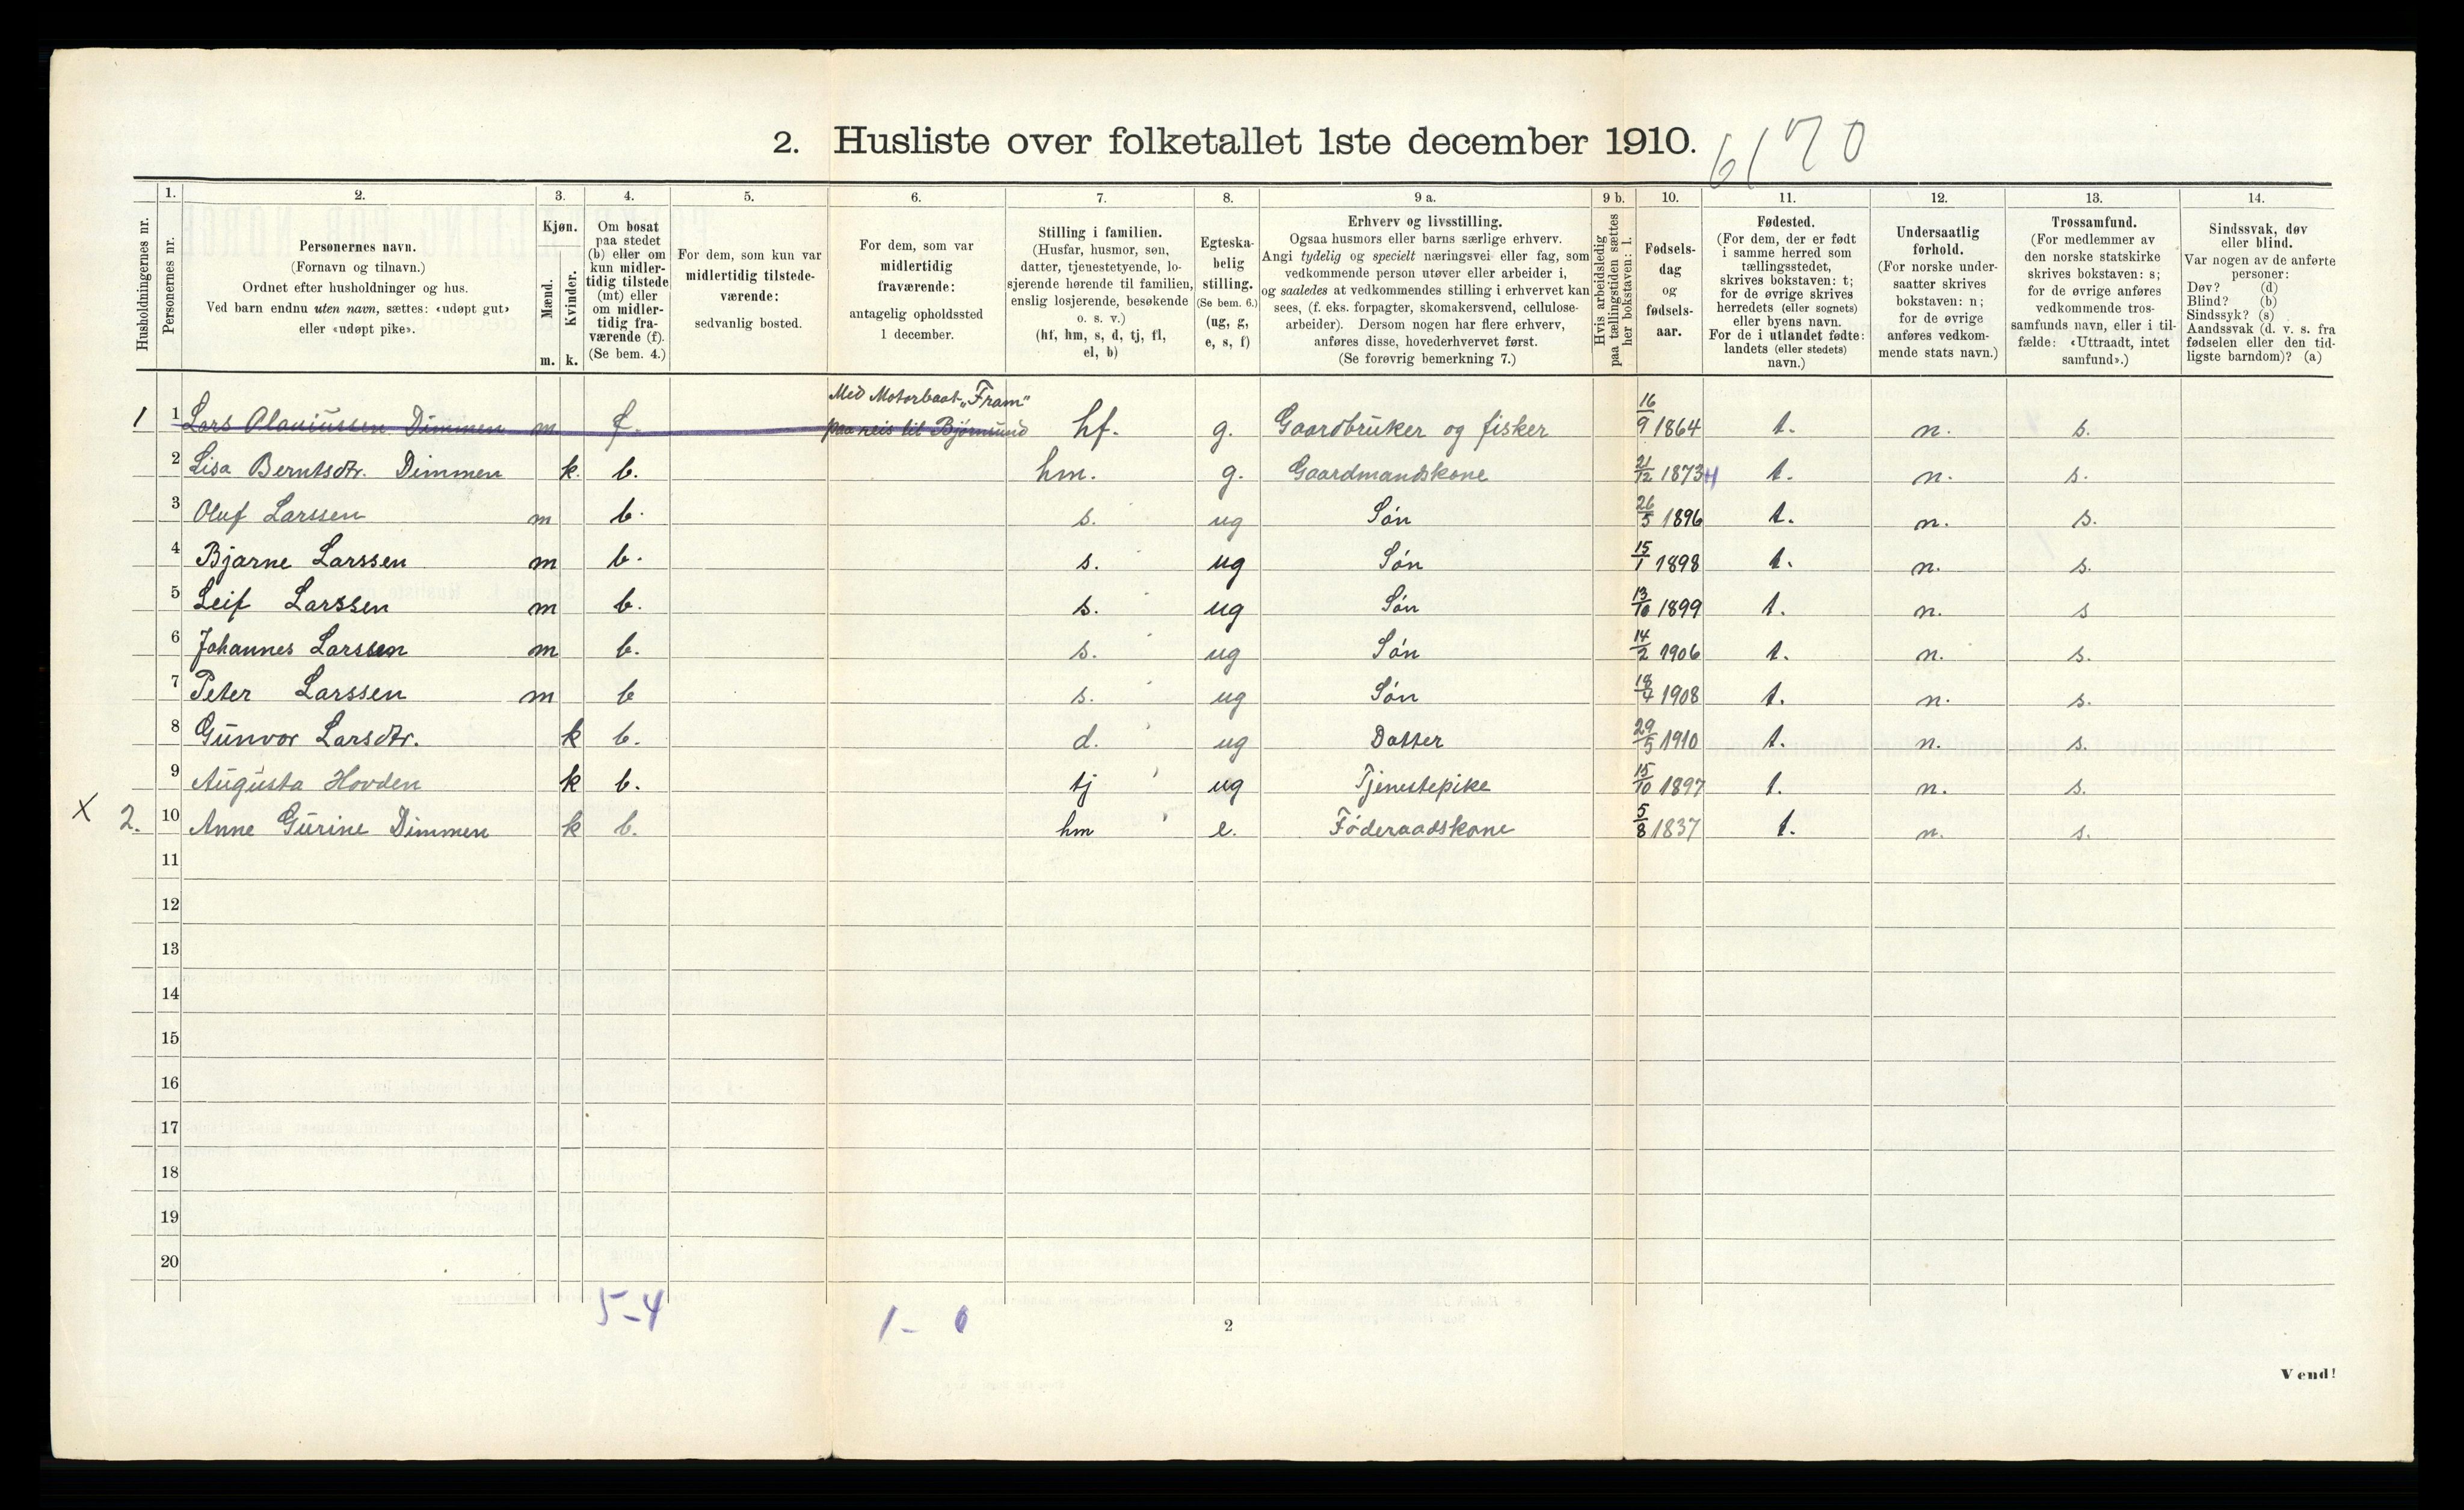 2. Husliste over folketallet 1ste december 1910.
6170
Husholdningernes nr.
1.
Personernes nr.
2.
Personernes navn.
(Fornavn og tilnavn.)
Ordnet efter husholdninger og hus.
Ved barn endnu uten navn, sættes: «udøpt gut»
eller «udøpt pike».
3.
Kjøn.
Mænd.
Kvinder.
m. k.
4.
Om bosat
paa stedet
(b) eller om
kun midler-
tidig tilstede
(mt) eller
om midler-
tidig fra-
værende (f).
(Se bem. 4.)
5.
For dem, som kun var
midlertidig tilstede-
værende:
sedvanlig bosted.
6.
For dem, som var
midlertidig
fraværende:
antagelig opholdssted
1 december.
7.
Stilling i familien.
(Husfar, husmor, søn,
datter, tjenestetyende, lo-
sjerende hørende til familien,
enslig losjerende, besøkende
o. s. v.)
(hf, hm, s, d, tj, fl,
el, b)
8.
Egteska-
belig
stilling.
(Se bem. 6.)
(ug, g,
e, s, f)
9 a.
Erhverv og livsstilling.
Ogsaa husmors eller barns særlige erhverv.
Angi tydelig og specielt næringsvei eller fag, som
vedkommende person utøver eller arbeider i,
og saaledes at vedkommendes stilling i erhvervet kan
sees, (f. eks. forpagter, skomakersvend, cellulose-
arbeider). Dersom nogen har flere erhverv,
anføres disse, hovederhvervet først.
(Se forøvrig bemerkning 7.)
9 b.
Hvis arbeidsledig
paa tællingstiden sættes
her bokstaven: l.
10.
Fødsels-
dag
og
fødsels-
aar.
11.
Fødested.
(For dem, der er født
i samme herred som
tællingsstedet,
skrives bokstaven: t;
for de øvrige skrives
herredets (eller sognets)
eller byens navn.
For de i utlandet fødte:
landets (eller stedets)
navn.)
12.
Undersaatlig
forhold.
(For norske under-
saatter skrives
bokstaven: n;
for de øvrige
anføres vedkom-
mende stats navn.)
13.
Trossamfund.
(For medlemmer av
den norske statskirke
skrives bokstaven: s;
for de øvrige anføres
vedkommende tros-
samfunds navn, eller i til-
fælde: «Uttraadt, intet
samfund».)
14.
Sindssvak, døv
eller blind.
Var nogen av de anførte
personer:
Døv? (d)
Blind? (b)
Sindssyk? (s)
Aandssvak (d. v. s. fra
fødselen eller den tid-
ligste barndom)? (a)
Med Motorbaat „Fram"
1 1 Lars Olaviussen Dimmen m f. paa reis til Bjørnsund hf. g. Gaardbruker og fisker 16/9 1864 t. n. s.
2 Lisa Berntsdtr. Dimmen k. b. hm. g. Gaardmandskone 21/12 1873 t. n. s.
3 Oluf Larssen m b. s. ug Søn 26/5 1896 t. n. s.
4 Bjarne Larssen m b. s. ug Søn 15/1 1898 t. n. s.
5 Leif Larssen m b. s. ug Søn 13/10 1899 t. n. s
6 Johannes Larssen m b. s. ug Søn 14/2 1906 t. n. s.
7 Peter Larssen m b s. ug Søn 18/4 1908 t. n. s.
8 Gunvor Larsdtr. k b. d. ug Datter 29/5 1910 t. n. s.
9 Augusta Hovden k b. tj ug Tjenestepike 15/10 1897 t. n. s.
X 2. 10 Anne Gurine Dimmen k b. hm e. Føderaadskone 5/8 1837 t. n. s.
11
12
13
14
15
16
17
18
19
20
5-4
1-0
2
Vend!